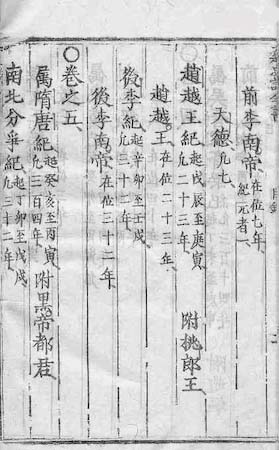 前李南帝在位七年紀元者一
天德凡七
〇趙越王紀起戊辰至庚寅凡二十三年 附桃郎王
趙越王在位二十三年
後李紀起辛卯至壬戌凡三十二年
後李南帝在位三十二年
〇卷之五
屬隋唐紀起癸亥至丙寅凡三百四年 附黑帝都君
南北分爭紀起丁卯至戊戌凡三十二年